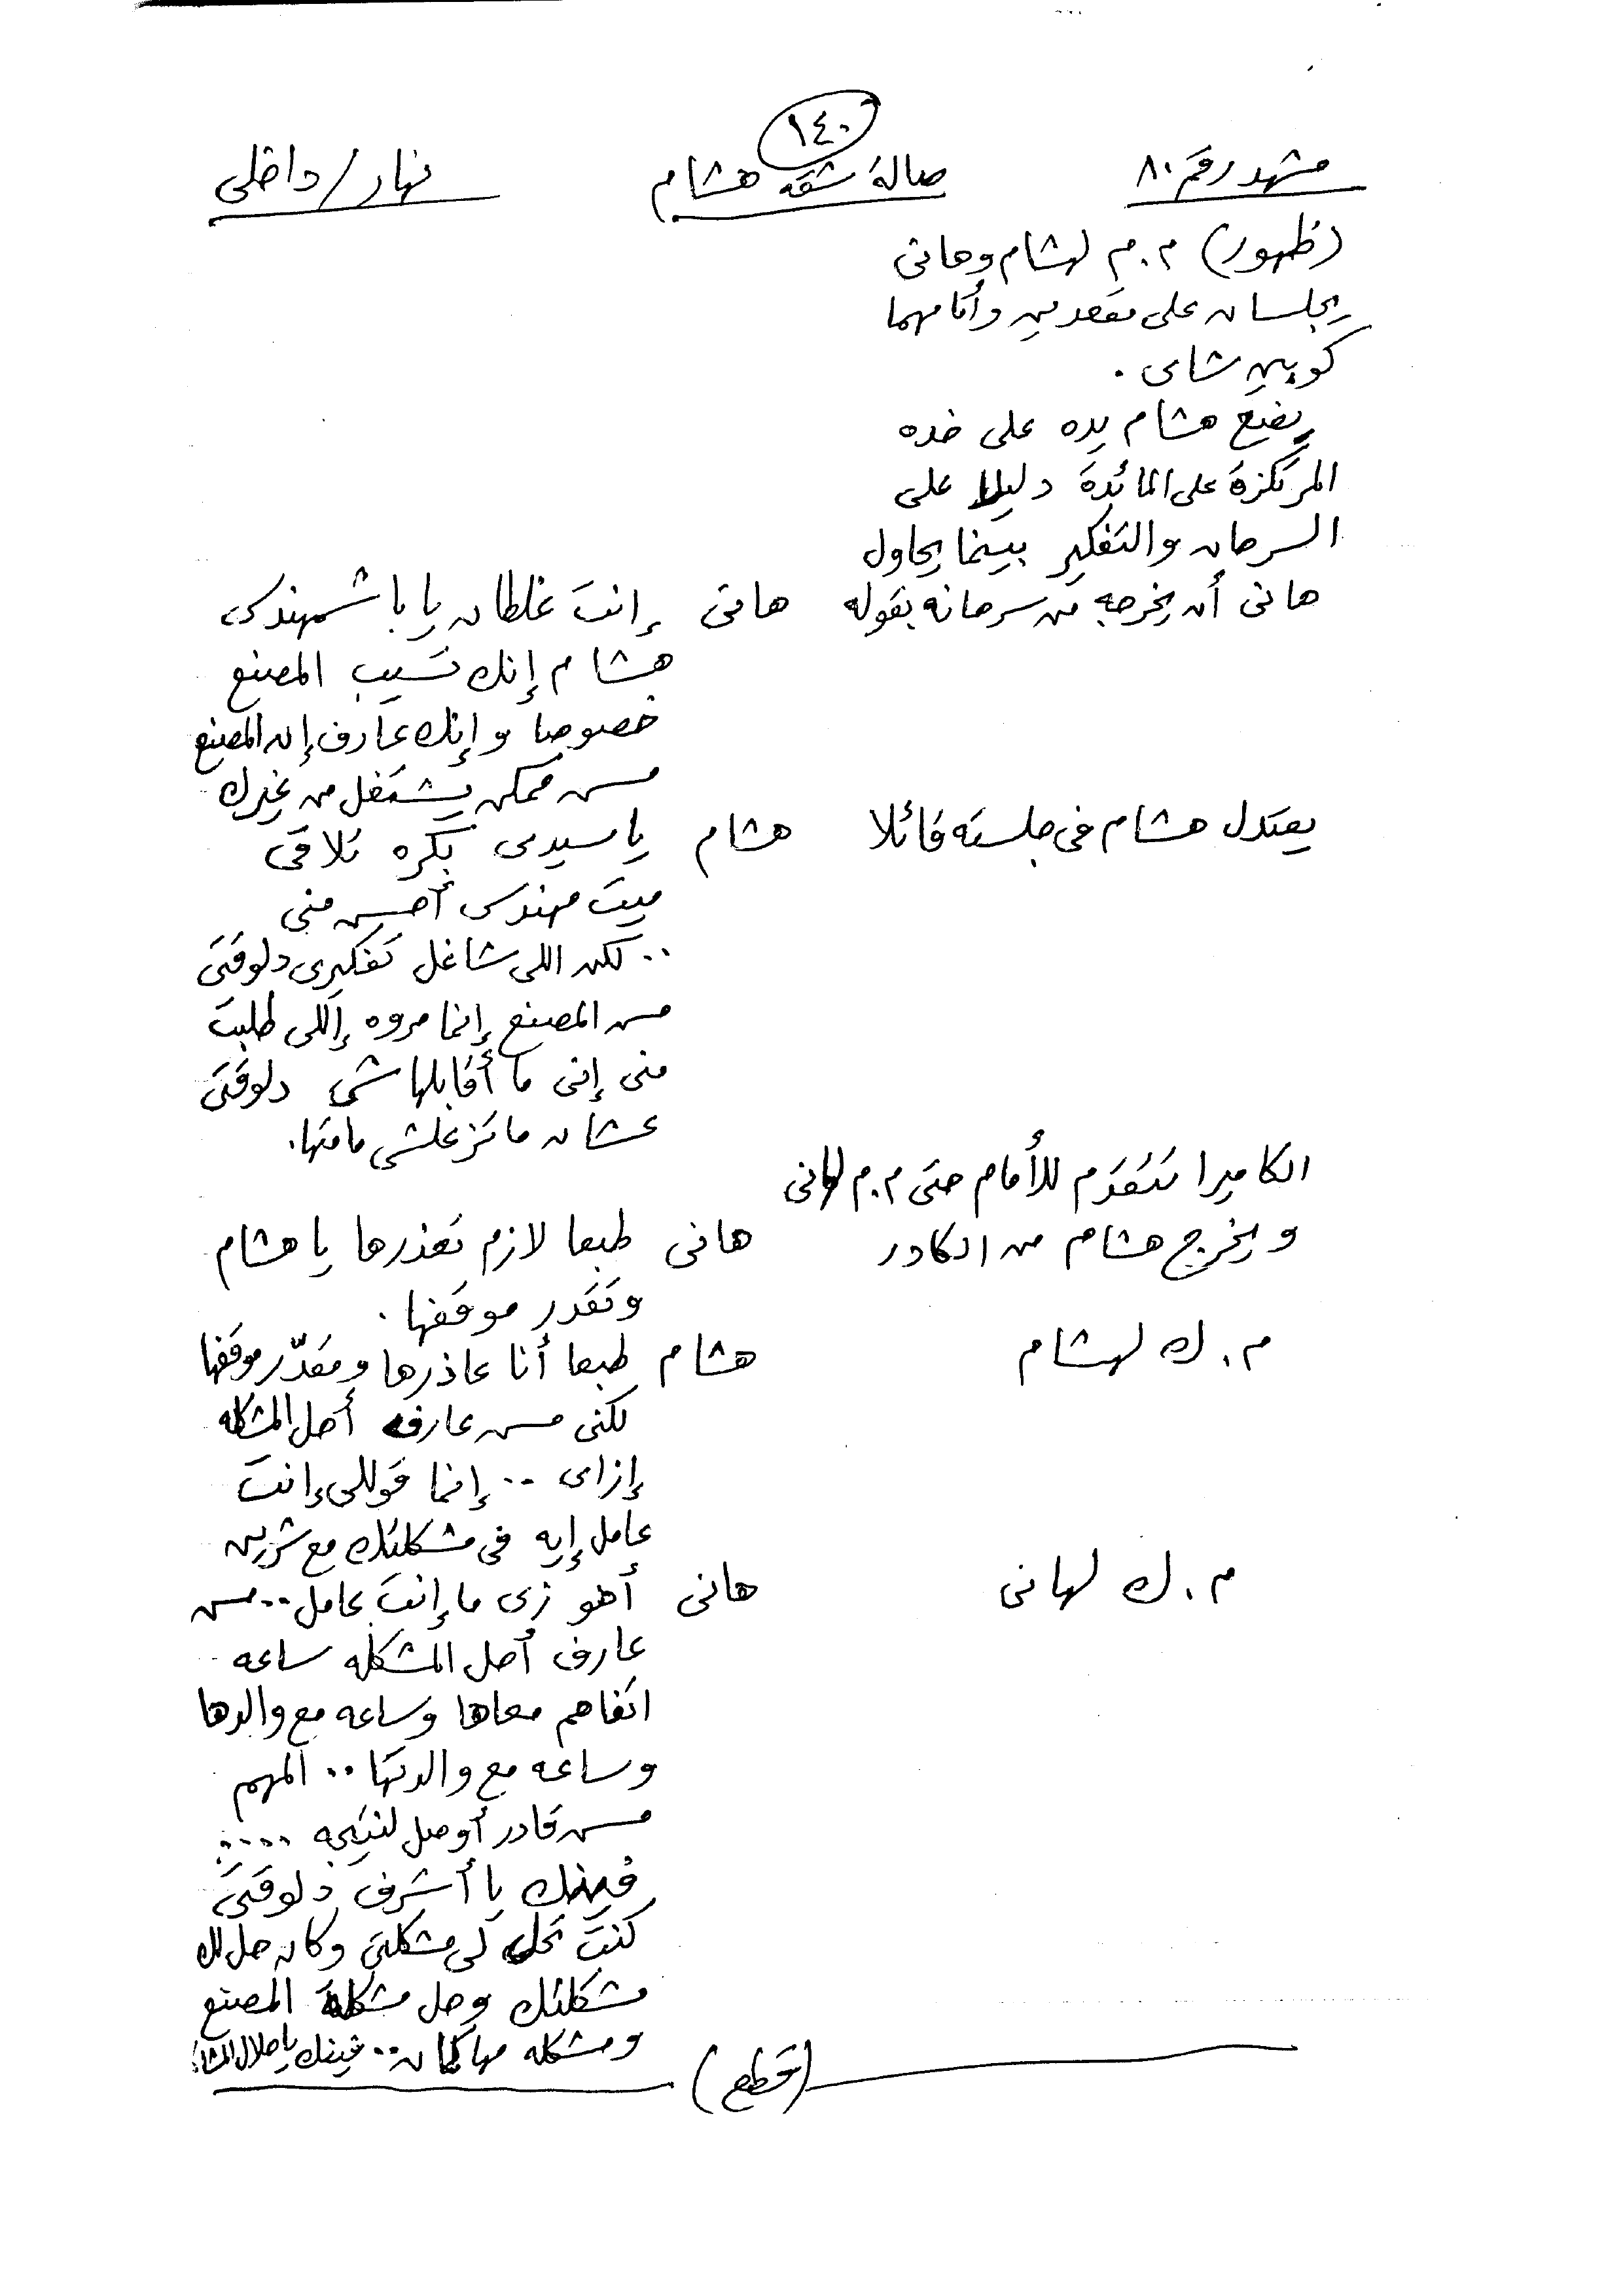 ١٤٠
مشهد رقم ٨٠ صالة شقه هشام نهار/داخلى
(ظهور) م.م لهشام وهانى
يجلسان على مقعدين وأمامهما
كوبين شاى .
يضع هشام يده على خده
المرتكزة على المائدة دليلا على
السرحان والتفكير بينما يحاول
هانى أن يخرجه من سرحانه بقوله هانى إنت غلطان يا باشمهندس
هشام إنك تسيب المصنع
خصوصا وإنك عارف إن المصنع
مش ممكن يشتغل من غيرك
يعتدل هشام فى جلسته قائلا هشام يا سيدى بكره تلاقى
ميت مهندس أحسن منى
.. لكن اللى شاغل تفكيرى دلوقتى
مش المصنع إنما مروه إللى طلبت
منى إنى ما أقابلهاشى دلوقتى
عشان ما تزعلشى مامتها.
الكاميرا تتقدم للأمام حتى م.م لهانى
ويخرج هشام من الكادر هانى طبعا لازم تعذرها يا هشام
وتقدر موقفها .
م. ك لهشام هشام طبعا أنا عاذرها ومقدّر موقفها
لكنى مش عارف أحل المشكله
إزاى .. إنما قوللى إنت
عامل إيه فى مشكلتك مع شرين
م. ك لهانى هانى أهو زى ما إنت عامل .. مش
عارف أحل المشكله ساعه
اتفاهم معاها وساعه مع والدها
وساعه مع والدتها .. المهم
مش قادر أوصل لنتيجه ....
فينك يا أشرف دلوقتى
كنت تحل لى مشكلتى وكان حل لك
مشكلتك وحل مشكلة المصنع
ومشكله مها كمان .. فينك يا حلال المشا
(قطع)